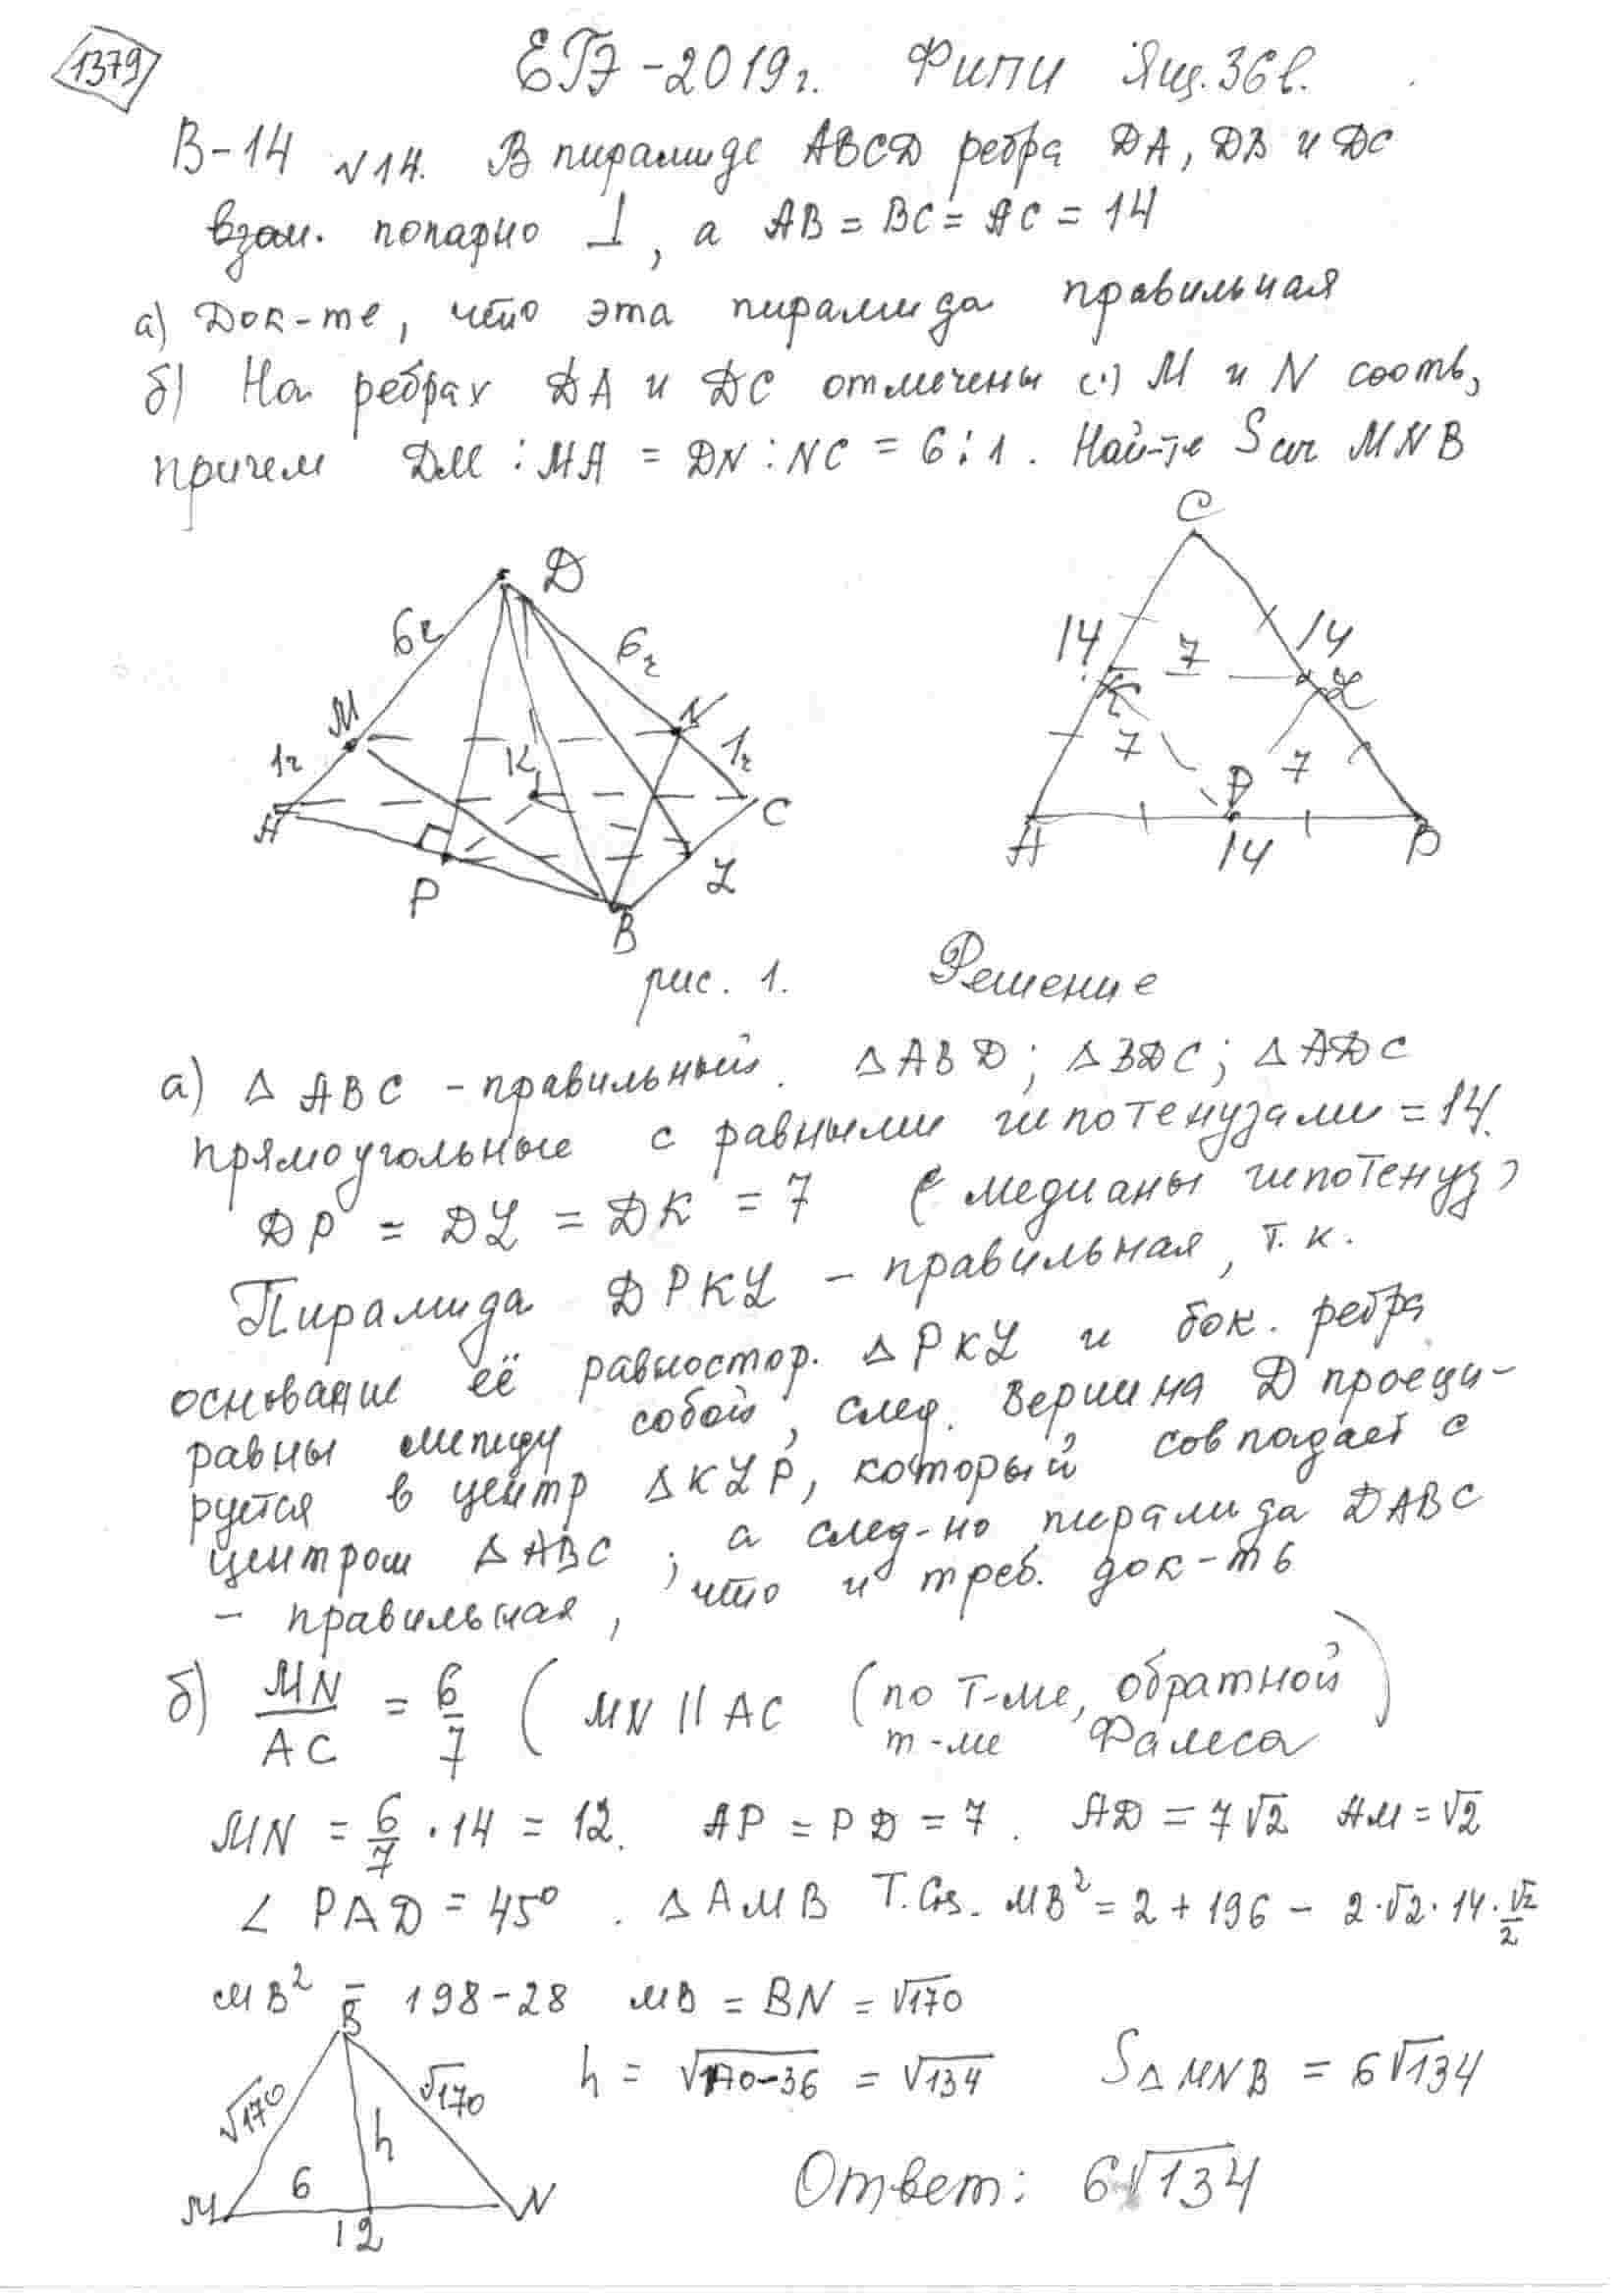 1379
ЕГЭ-2019г. ФИПИ Ящ.36в.
В-14 №14. В пирамиде ABCD ребра DA, DB и DC
взаи. попарно ⊥, а AB = BC = AC = 14
а) Док-те, что эта пирамида правильная
б) На ребрах DA и DC отмечены (·) M и N соотв,
причем DM : MA = DN : NC = 6 : 1. Най-те Sсеч MNB
D
6x
6x
M
N
1x
1x
K
A
C
P
L
B
C
14
14
7
K
L
7
7
P
A
14
B
рис. 1.
Решение
а) Δ ABC - правильный. Δ ABD; Δ BDC; Δ ADC
прямоугольные с равными гипотенузами = 14.
DP = DL = DK = 7 (медианы гипотенуз)
Пирамида DPKL - правильная, т.к.
основание её равностор. Δ PKL и бок. ребра
равны между собой, след. вершина D проеци-
руется в центр Δ KLP, который совпадает с
центром Δ ABC, а след-но пирамида DABC
- правильная, что и треб. док-ть
б) MN/AC = 6/7 (MN || AC (по т-ме, обратной
т-ме Фалеса)
MN = 6/7 · 14 = 12. AP = PD = 7. AD = 7√2 AM = √2
∠ PAD = 45°. Δ AMB Т.Cos. MB² = 2 + 196 - 2·√2·14·√2/2
MB² = 198-28 MB = BN = √170
B
√170
√170
h
6
M
12
N
h = √170-36 = √134 SΔ MNB = 6√134
Ответ: 6√134